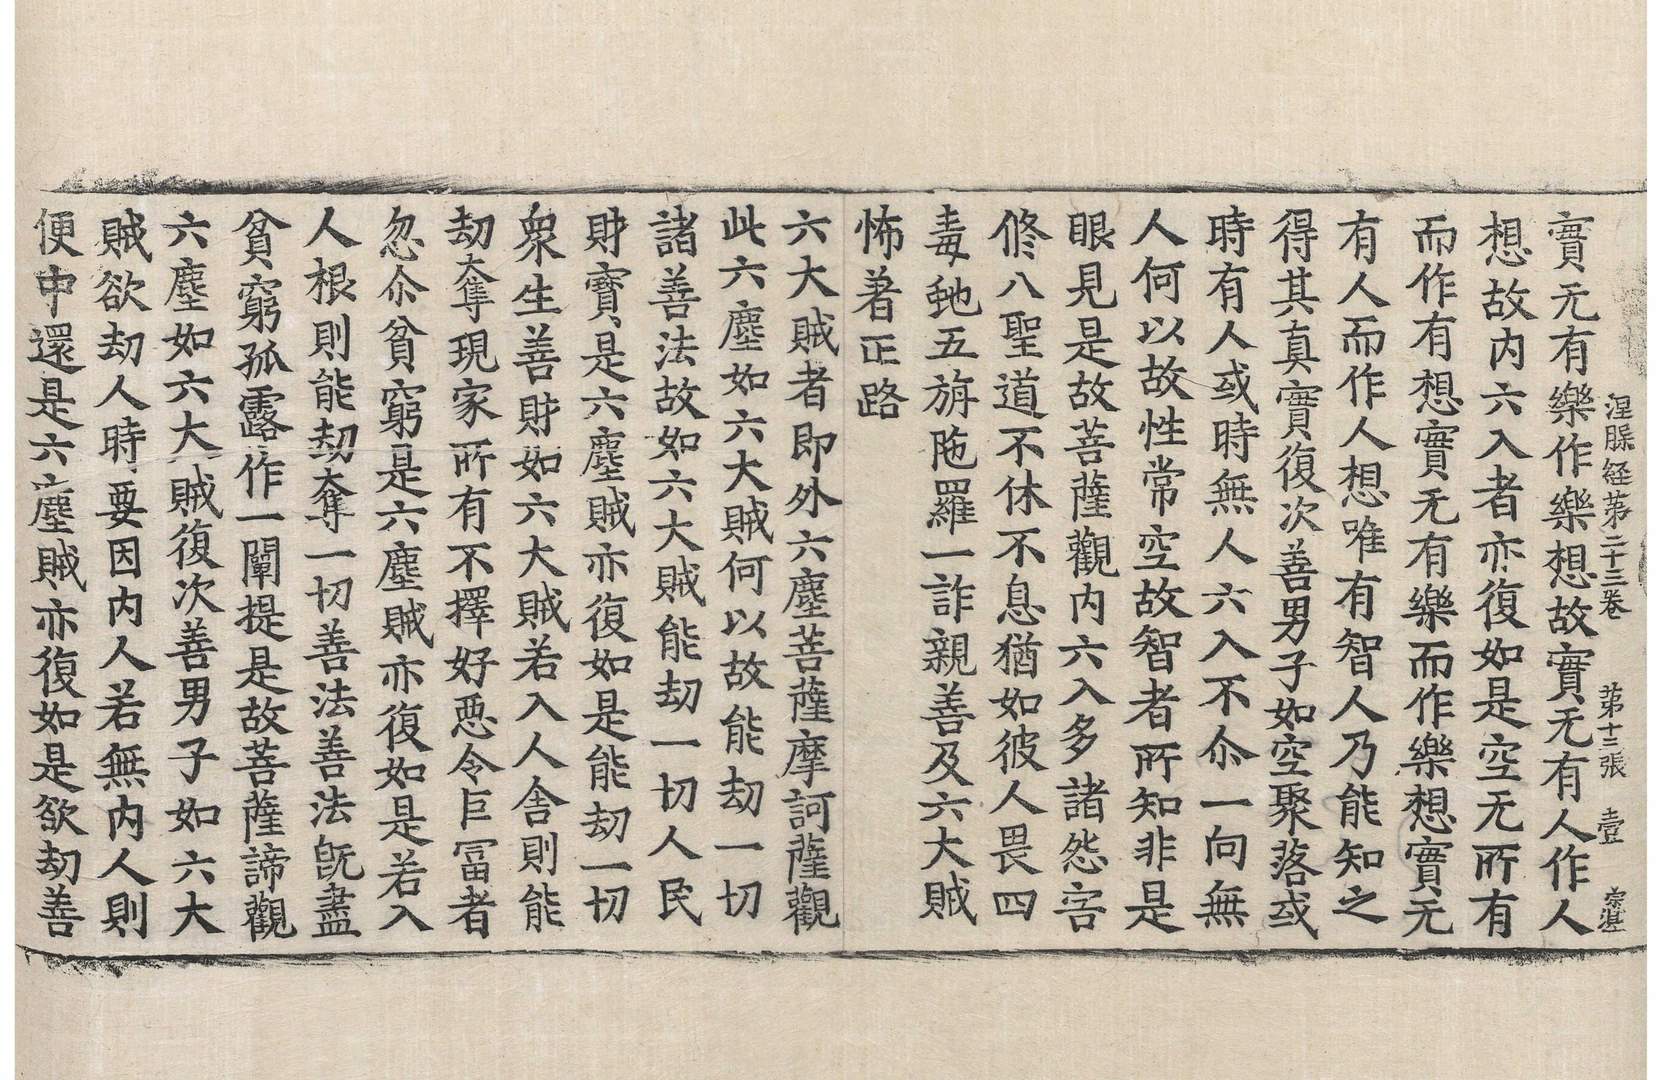 涅槃經第二十三卷　第十三張　壹　崇湛
實无有樂作樂想故實无有人作人
想故内六入者亦復如是空无所有
而作有想實无有樂而作樂想實无
有人而作人想唯有智人乃能知之
得其真實復次善男子如空聚落或
時有人或時無人六入不尒一向無
人何以故性常空故智者所知非是
眼見是故菩薩觀内六入多諸怨害
脩八聖道不休不息猶如彼人畏四
毒虵五旃陁羅一詐親善及六大賊
怖著正路
六大賊者即外六塵菩薩摩訶薩觀
此六塵如六大賊何以故能劫一切
諸善法故如六大賊能劫一切人民
財寶是六塵賊亦復如是能劫一切
衆生善財如六大賊若入人舍則能
劫奪現家所有不擇好惡令巨冨者
忽尒貧窮是六塵賊亦復如是若入
人根則能劫奪一切善法善法旣盡
貧窮孤露作一闡提是故菩薩諦觀
六塵如六大賊復次善男子如六大
賊欲劫人時要因内人若無内人則
便中還是六塵賊亦復如是欲劫善